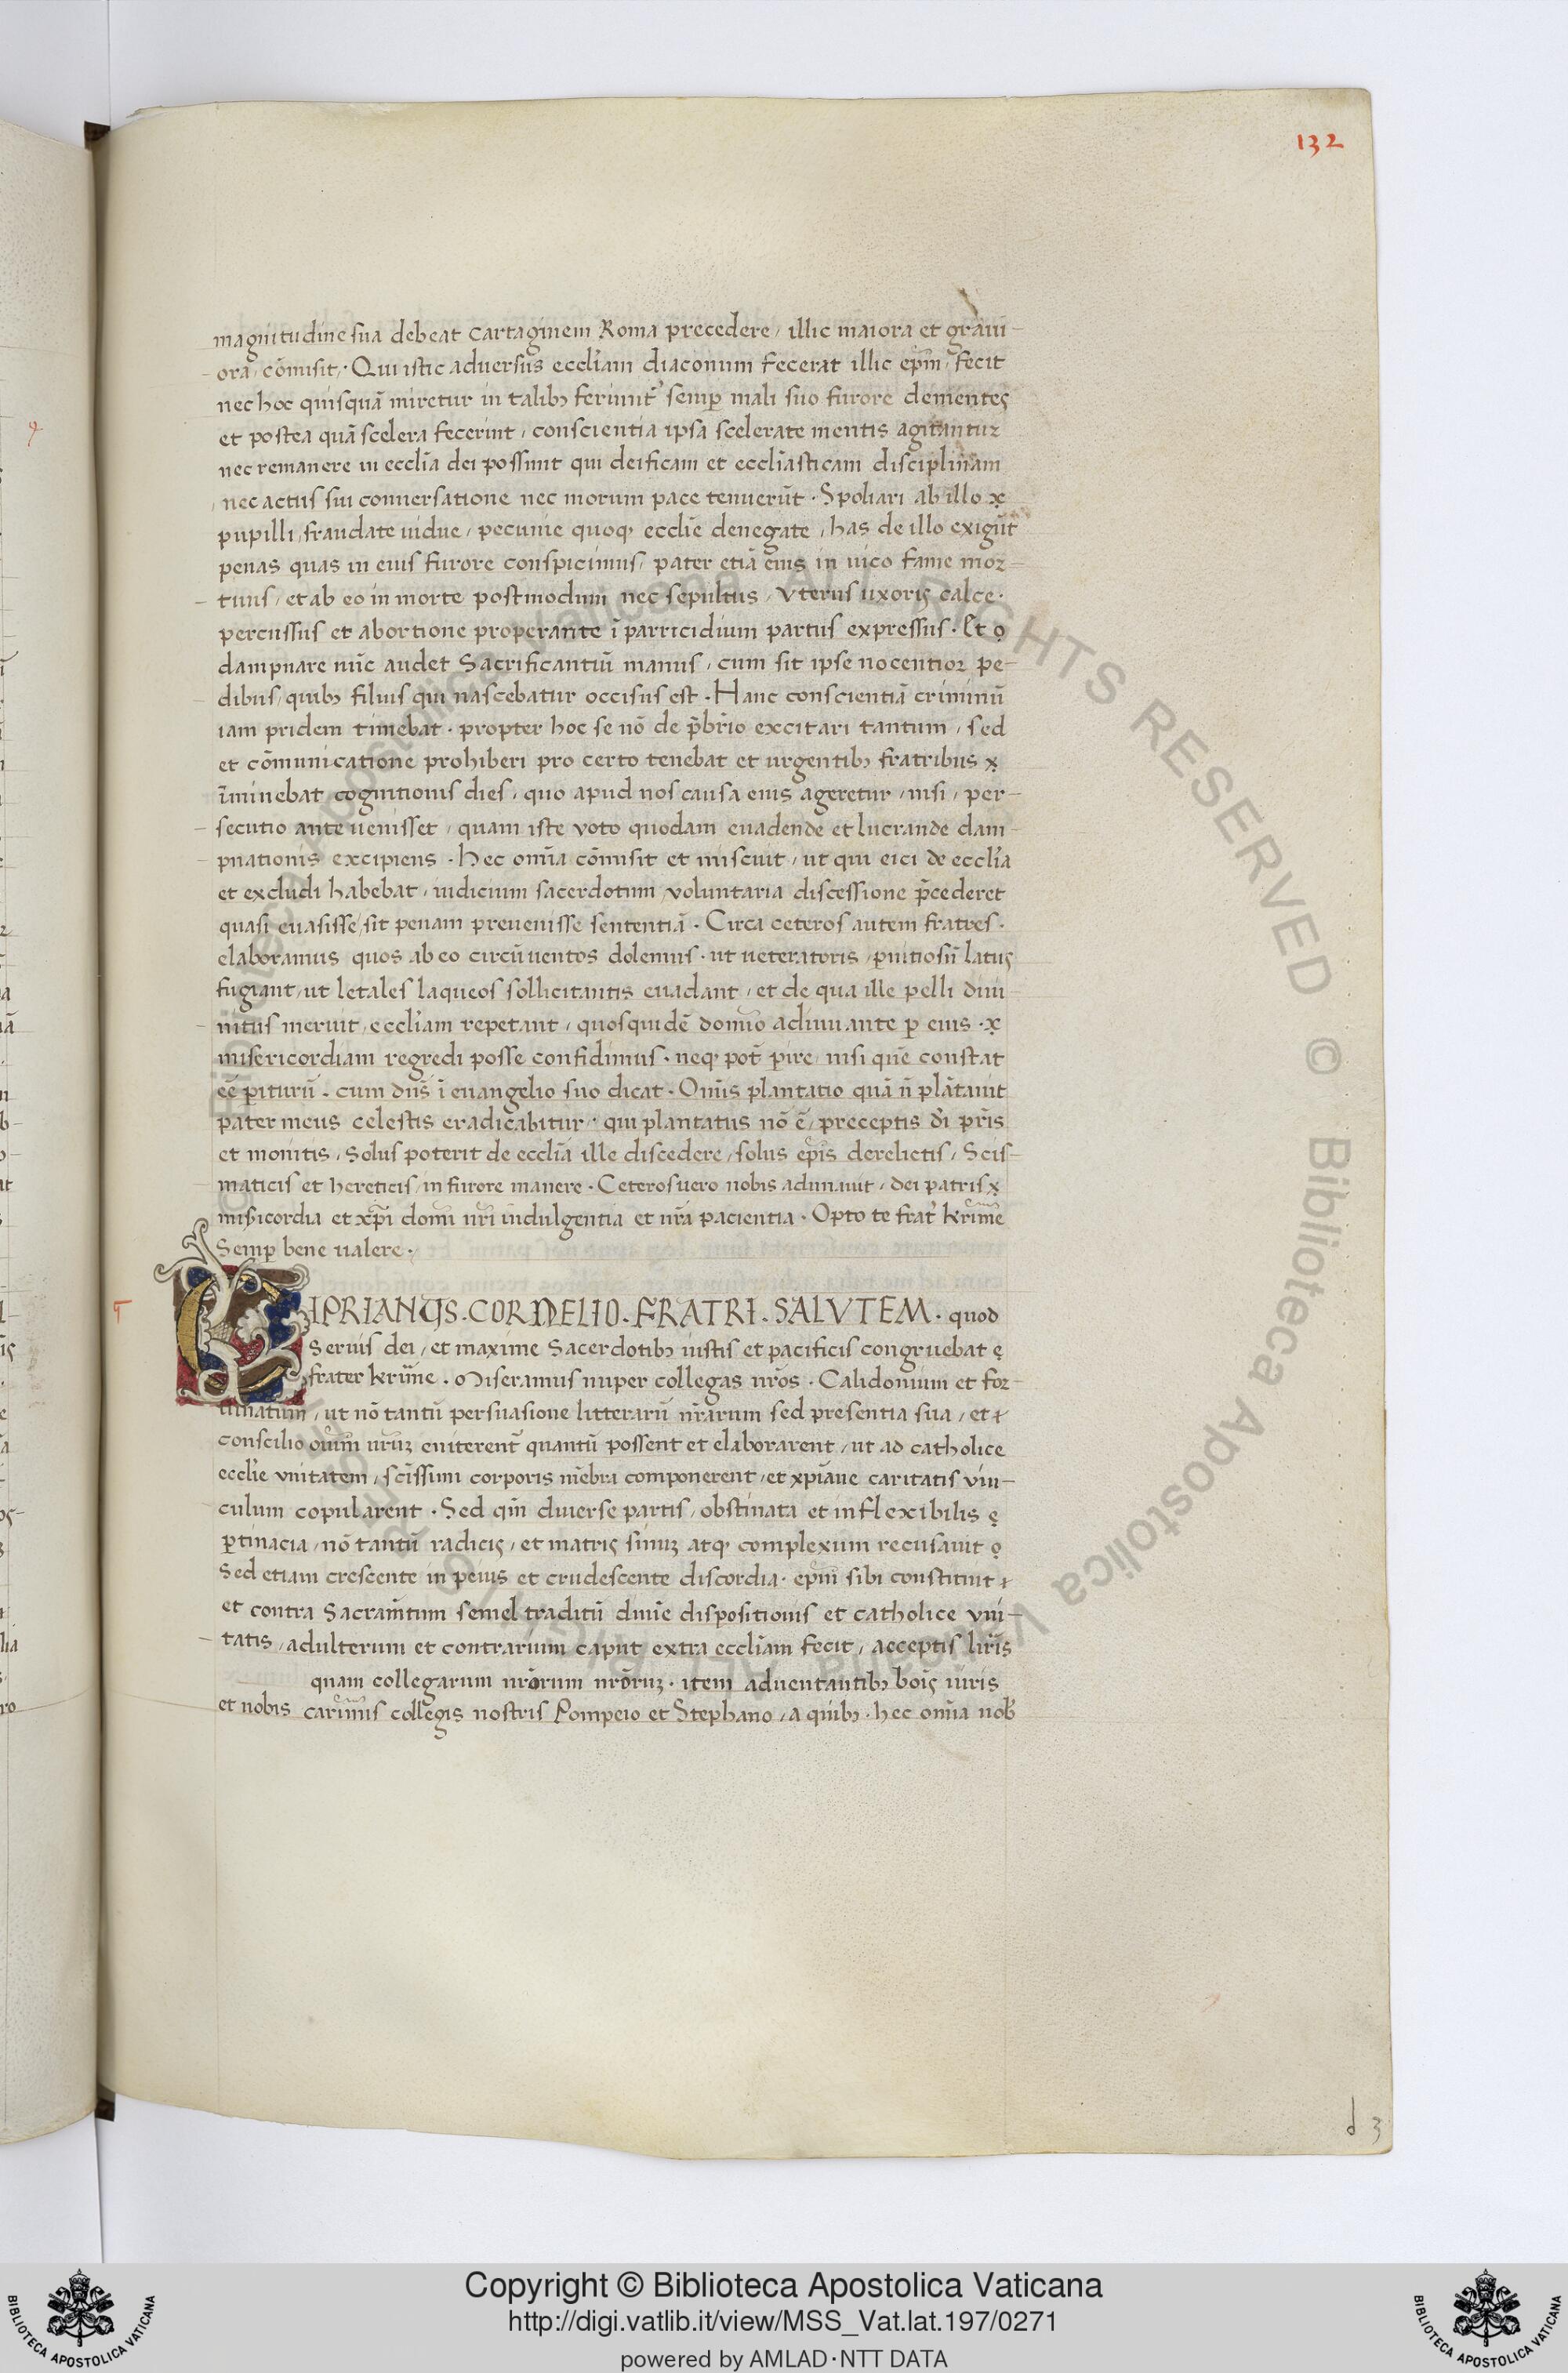 132
magnitudine sua debeat cartaginem Roma precedere, illic maiora et graui-
ora, cōmisit. Qui istic aduersus eccl̄iam diaconum fecerat illic ep̄m, fecit
nec hoc quisquā miretur in talibꝫ feriunt̄ semp̱ mali suo furore dementes
et postea quā scelera fecerint, conscientia ipsa scelerate mentis agitantur
nec remanere in eccl̄ia dei possunt qui deificam et eccl̄iasticam disciplinam
nec actus sui conuersatione nec morum pace tenuerūt. Spoliari ab illo
pupilli, fraudate uidue, pecunie quoqꝫ eccl̄ie denegate, has de illo exigūt
penas quas in eius furore conspicimus, pater etiā eius in uico fame mor-
tuus, et ab eo in morte postmodum nec sepultus, Vterus uxoris calce.
percussus et abortione properante ī parricidium partus expressus. Et
dampnare nūc audet Sacrificantiū manus, cum sit ipse nocentior pe-
dibus, quibꝫ filius qui nascebatur occisus est. Hanc conscientiā criminū
iam pridem timebat. propter hoc se nō de p̄br̄io excitari tantum, sed
et cōmunicatione prohiberi pro certo tenebat et urgentibꝫ fratribus
īminebat cognitionis dies, quo apud nos causa eius ageretur, nisi, per-
secutio ante uenisset, quam iste voto quodam euadende et lucrande dam-
pnationis excipiens. hec om̄ia cōmisit et miscuit, ut qui eici de eccl̄ia
et excludi habebat, iudicium sacerdotum, voluntaria discessione p̄cederet
quasi euasisse, sit penam preuenisse sententiā. Circa ceteros autem fratres.
elaboramus quos ab eo circūuentos dolemus. ut ueteratoris, p̱nitiosū latus
fugiant, ut letales laqueos sollicitantis euadant, et de qua ille pelli diui-
nitus meruit, eccl̄iam repetant, quos quidē domio adiuuante p̱ eius.
misericordiam regredi posse confidimus. neqꝫ pot̄ p̱ire, nisi quē constat
eē p̱iturū. cum dn̄s ī euangelio suo dicat. Om̄is plantatio quā n̄ plātauit
pater meus celestis eradicabitur. qui plantatus nō ē, preceptis dī pr̄is
et monitis, Solus poterit de eccl̄ia ille discedere, solus ep̄is derelictis, Scis-
maticis et hereticis, in furore manere. Ceteros uero nobis adunauit, dei patris
mis̄icordia et xp̄i domī nr̄i indulgentia et nr̄a pacientia. Opto te frat̄ kr̄ime
Semp̱ bene ualere.
CIPRIANUS. CORNELIO. FRATRI. SALVTEM. quod
Seruis dei, et maxime Sacerdotibꝫ iustis et pacificis congruebat
frater kr̄ime. Miseramus nuper collegas nr̄os. Calidonium et for-
tunatum, ut nō tantū persuasione litterarū nr̄arum sed presentia sua, et
conscilio oium̄ ur̄uꝫ eniterent̄ quantū possent et elaborarent, ut ad catholice
eccl̄ie vnitatem, scissimi corporis mēbra componerent, et xp̄iane caritatis vin-
culum copularent. Sed qm̄ diuerse partis, obstinata et inflexibilis
p̱tinacia, nō tantū radicis, et matris sinuꝫ atqꝫ complexum recusauit
Sed etiam crescente in peius et crudescente discordia. ep̄m sibi constituit
et contra Sacram̄tum semel traditū diuīe dispositionis et catholice vni-
tatis, adulterum et contrarium caput extra eccl̄iam fecit, acceptis lr̄is
quam collegarum nr̄orum nr̄oruꝫ. item aduentantibꝫ boīs uiris
et nobis carimis collegis nostris Pompeio et Stephano, a quibꝫ. hec om̄ia nob̄
d 3
© Biblioteca Apostolica Vaticana ALL RIGHTS RESERVED © Biblioteca Apostolica Vaticana ALL RIGHTS RESERVED
Copyright © Biblioteca Apostolica Vaticana
http://digi.vatlib.it/view/MSS_Vat.lat.197/0271
powered by AMLAD·NTT DATA
BIBLIOTECA APOSTOLICA VATICANA
BIBLIOTECA APOSTOLICA VATICANA